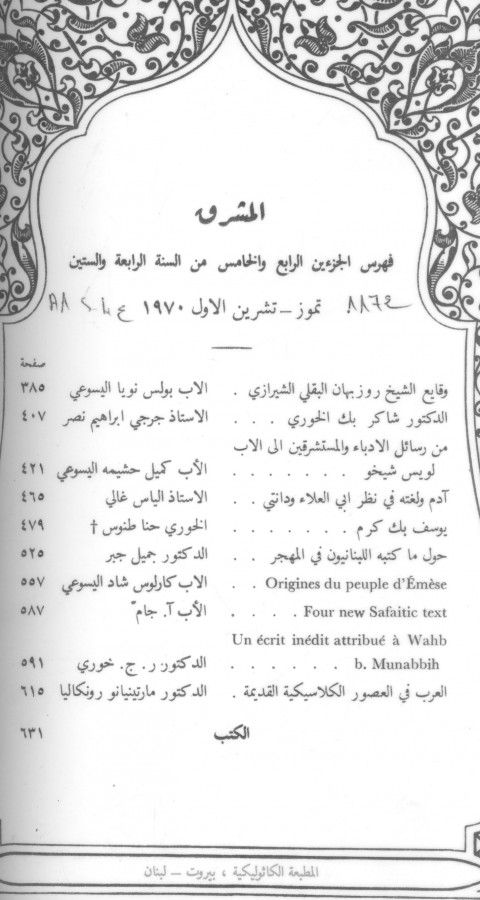 المشرق
فهرس الجزءين الرابع والخامس من السنة الرابعة والستين
تموز – تشرين الاول ١٩٧٠
صفحة
وقايع الشيخ روزبهان البقلي الشيرازي . الاب بولس نويا اليسوعي ٣٨٥
الدكتور شاكر بك الخوري . . . الاستاذ جرجي ابراهيم نصر ٤٠٧
من رسائل الادباء والمستشرقين الى الاب
لويس شيخو . . . . . . . الأب كميل حشيمه اليسوعي ٤٢١
آدم ولغته في نظر ابي العلاء ودانتي . . الاستاذ الياس غالي ٤٦٥
يوسف بك كرم . . . . . . . الخوري حنا طنوس † ٤٧٩
حول ما كتبه اللبنانيون في المهجر . . الدكتور جميل جبر ٥٢٥
Origines du peuple d'Émèse . . الاب كارلوس شاد اليسوعي ٥٥٧
Four new Safaitic text . . . . الأب آ. جامّ ٥٨٧
Un écrit inédit attribué à Wahb
b. Munabbih . . . . . . الدكتور ر. ج. خوري ٥٩١
العرب في العصور الكلاسيكية القديمة . الدكتور مارتينيانو رونكاليا ٦١٥
الكتب ٦٣١
المطبعة الكاثوليكية ، بيروت – لبنان